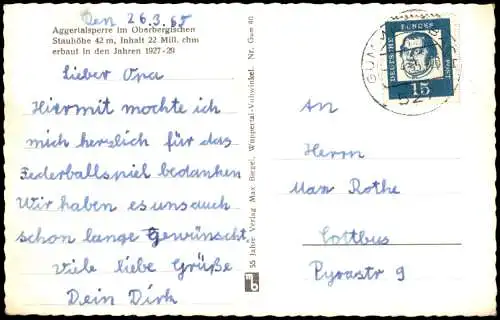 Den 26.3.65
Aggertalsperre im Oberbergischen
Stauhöhe 42 m, Inhalt 22 Mill. cbm
erbaut in den Jahren 1927-29
Lieber Opa
Hiermit mochte ich
mich herzlich für das
Federballspiel bedanken
Wir haben es uns auch
schon lange Gewünscht.
Viele liebe Grüße
Dein Dirk
55 Jahre Verlag Max Biegel, Wuppertal-Vohwinkel Nr. Gum 80
DEUTSCHE
BUNDESPOST
15
GUM
527
An
Herrn
Max Rothe
Cottbus
Pyrastr 9